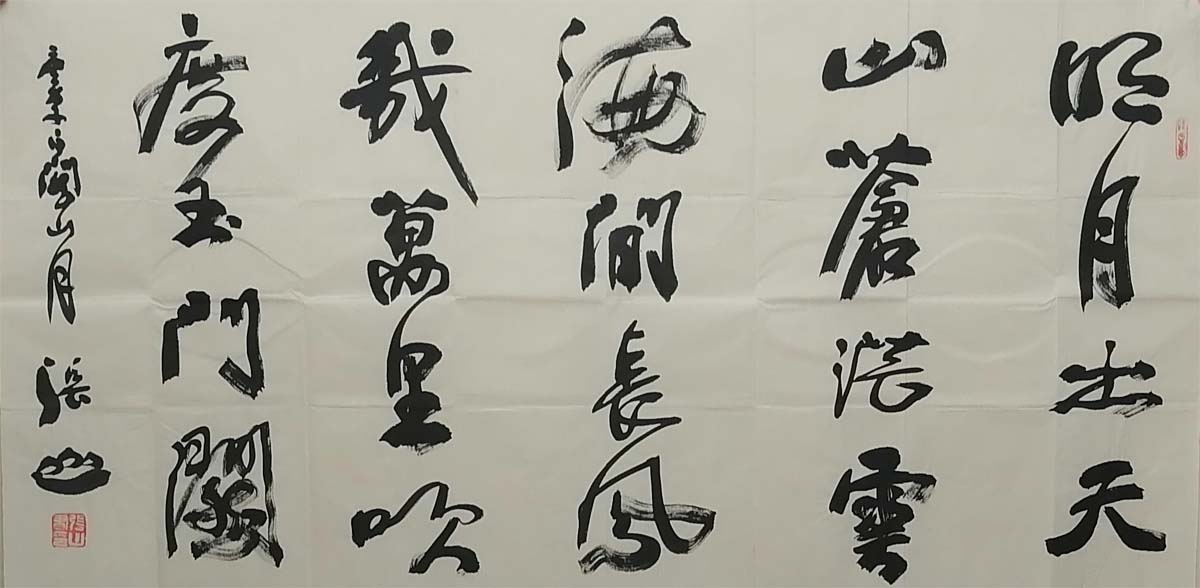 明月出天
山蒼茫雲
海間長風
幾萬里吹
度玉門關
李白關山月 張